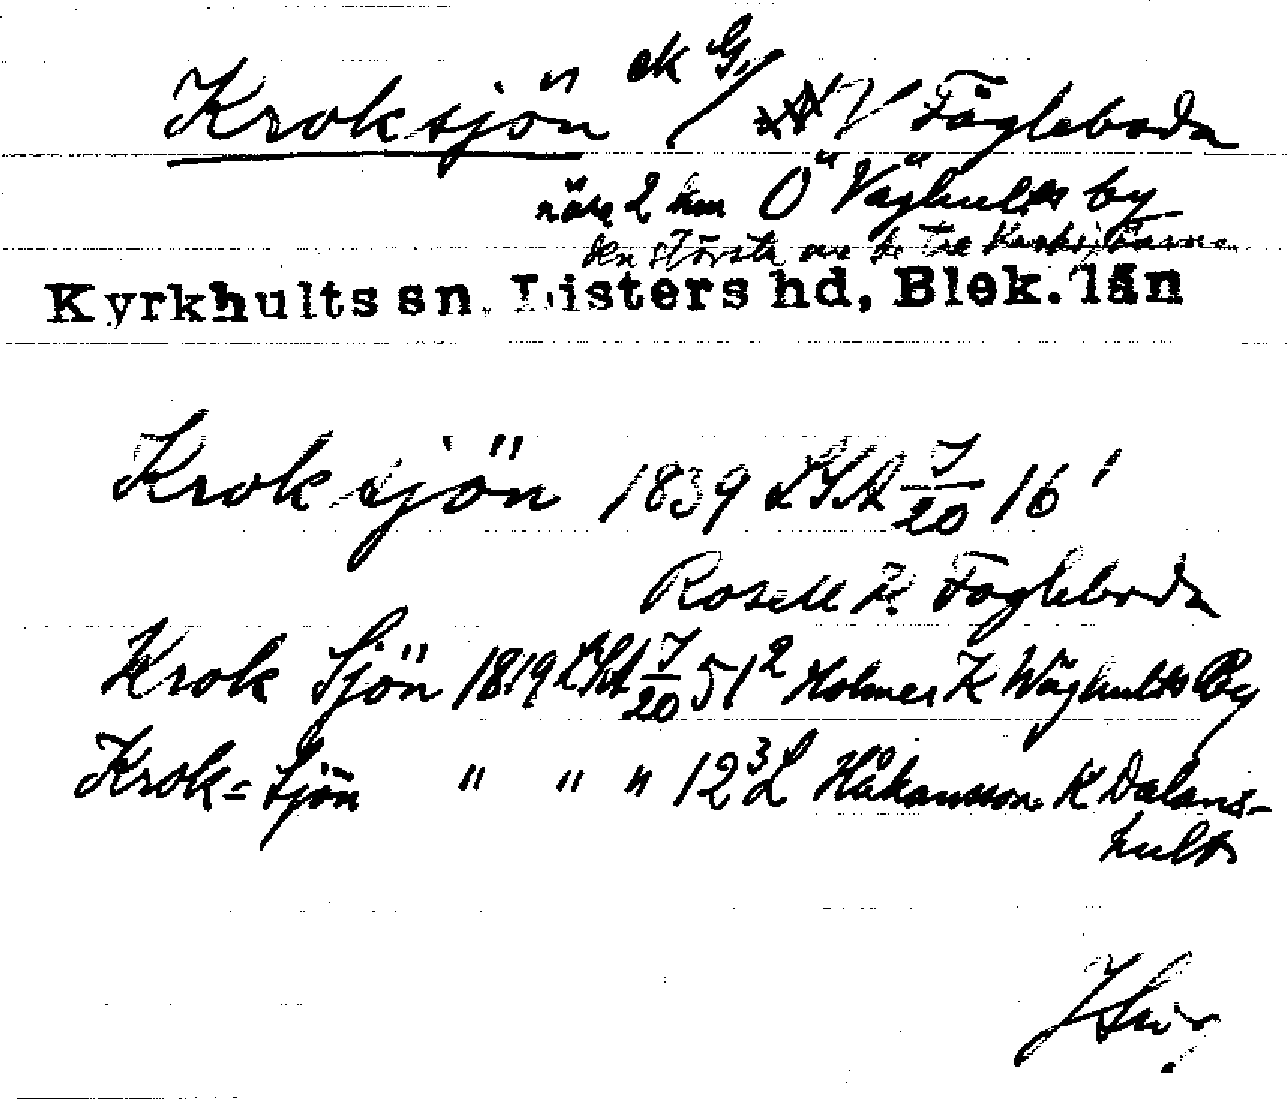 Kroksjön ek G. / V Fägleboda
nära 2 km Ö Väghults by
den största av de tre Kroksjöarna
Kyrkhults sn. Listers hd, Blek. län
Kroksjön 1839 LSA J/20 16'
Rosell K. Fägleboda
Krok Sjön 1819 LSA J/20 51² Holmer K Wäghults By
Krok=Sjön " " " 12³ L Håkansson K Dalans-
hult